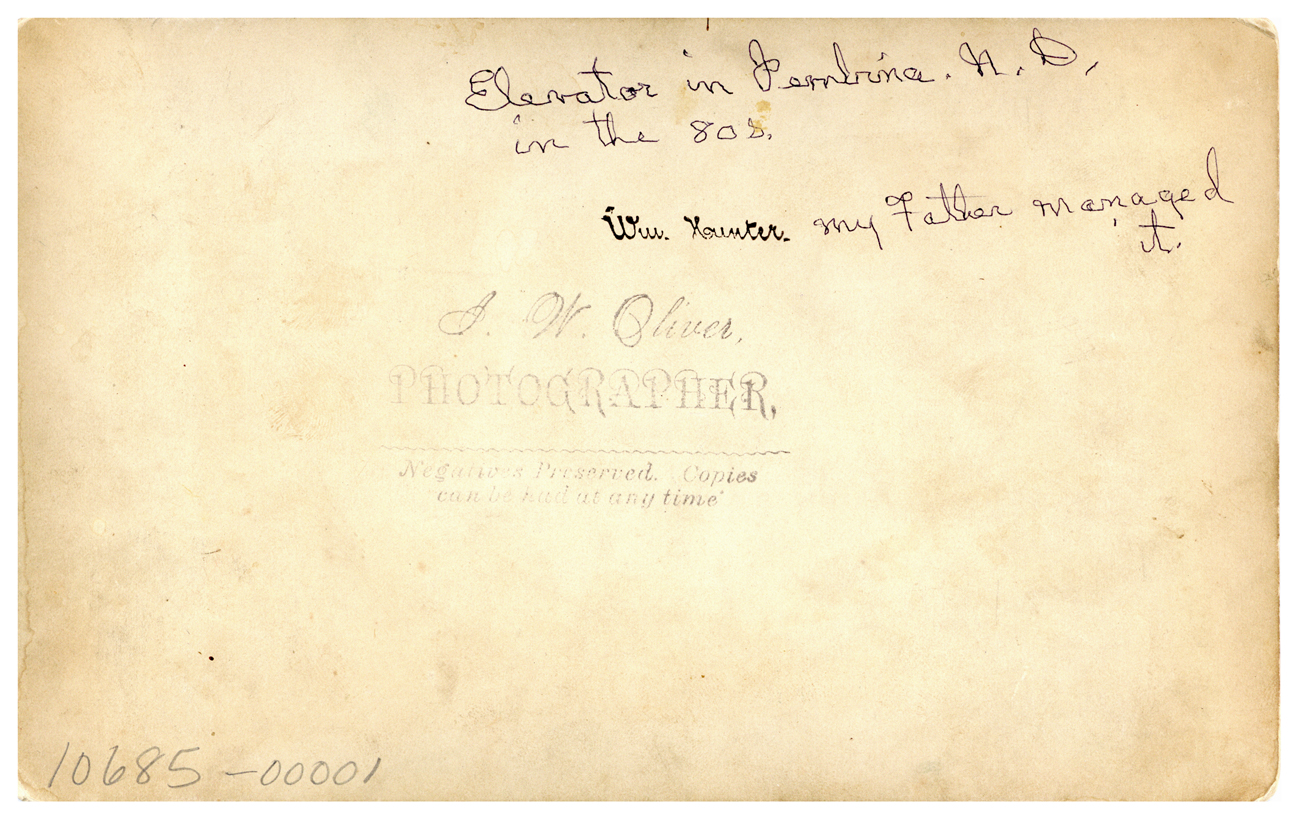 Elevator in Pembina. N. D,
in the 80s.
Wm. Hunter. my Father managed
it.
J. W. Oliver,
PHOTOGRAPHER,
Negatives Preserved. Copies
can be had at any time
10685-00001